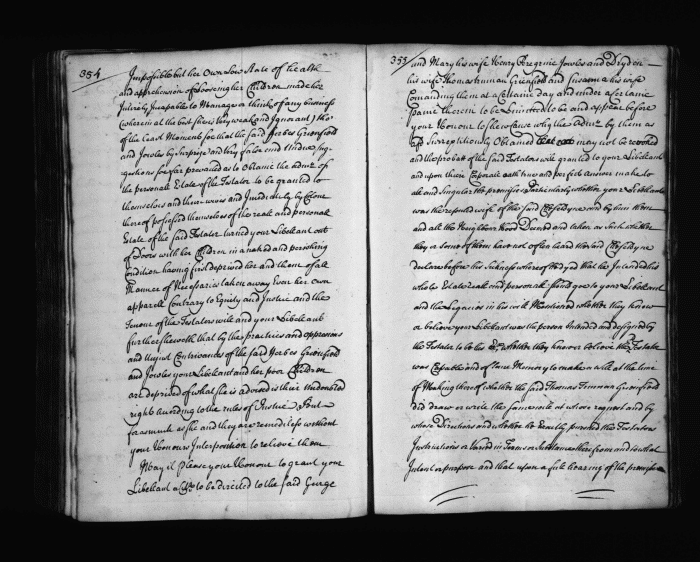 354
Impossible but her Own Low State of health
and apprehension of Looseing her Children made her
Intirely Incapable to Manage or think of any business
(wherein at the best she is Very weak and Ignorant) tho'
of the Least Moment soe that the said Forbes Greenfield
and Jowles by Surprize and very false and Undue Sug-
gestions soe far prevailed as to Obtaine the Admr of
the personale Estate of the Testator to be granted to
themselves and there wives and Imediately by Colour
thereof possessed themselves of the reale and personale
Estate of the said Testator turned your Libellant out
of Doors with her Children in a naked and perishing
Condition having first deprived her and them of all
Manner of Necessaries taken away Even her own
apparell Contrary to Equity and Justice and the
Tenour of the Testators will and your Libellant
further sheweth that by the practices and oppressions
and Unjust Contrivances of the said Forbes Greenfield
and Jowles your Libellant and her poor Children
are deprived of what she is advised is their Undoubted
right according to the rules of Justice
forasmuch as she and they are remediless without
your Honours Interposition to relieve them
May it please your Honour to grant your
Libellant a to be directed to the said George
355
and Mary his wife Henry Peregrine Jowles and Dryden
his wife Thomas Truman Greenfield and Susanna his wife
Comanding them at a Certaine day and under a Certaine
paine therein to be Limitted to be and appear before
your Honour to Shew Cause why the Admr by them as
Surreptitiously Obtained may not be revoked
and the probat of the said Testators will granted to your Libellant
and upon their Corporale oath true and perfect answer make to
all and Singular the premises Particularly whether your Libellant
was the reputed wife of the said and by him then
and all the Neighbour hood Deemed and taken as Such whether
they or Some of them have not Often heard the said
declare before his Sickness whereof he dyed that he Intended his
whole Estate reall and personale should goe to your Libellant
and the Legacies in his will Mentioned whether they know
or believe your Libellant was the person Intended and designed by
the Testator to be his whether they know or believe the Testator
was Capable and of Sane Memory to make a will at the time
of Making thereof whether the said Thomas Trueman Greenfield
did draw or write the same with at whose request and by
whose Directions and whether he Exactly pursued the Testators
Instructions or Varied in Terms or Substance therefrom and to what
Intent or purpose and that upon a full hearing of the premises